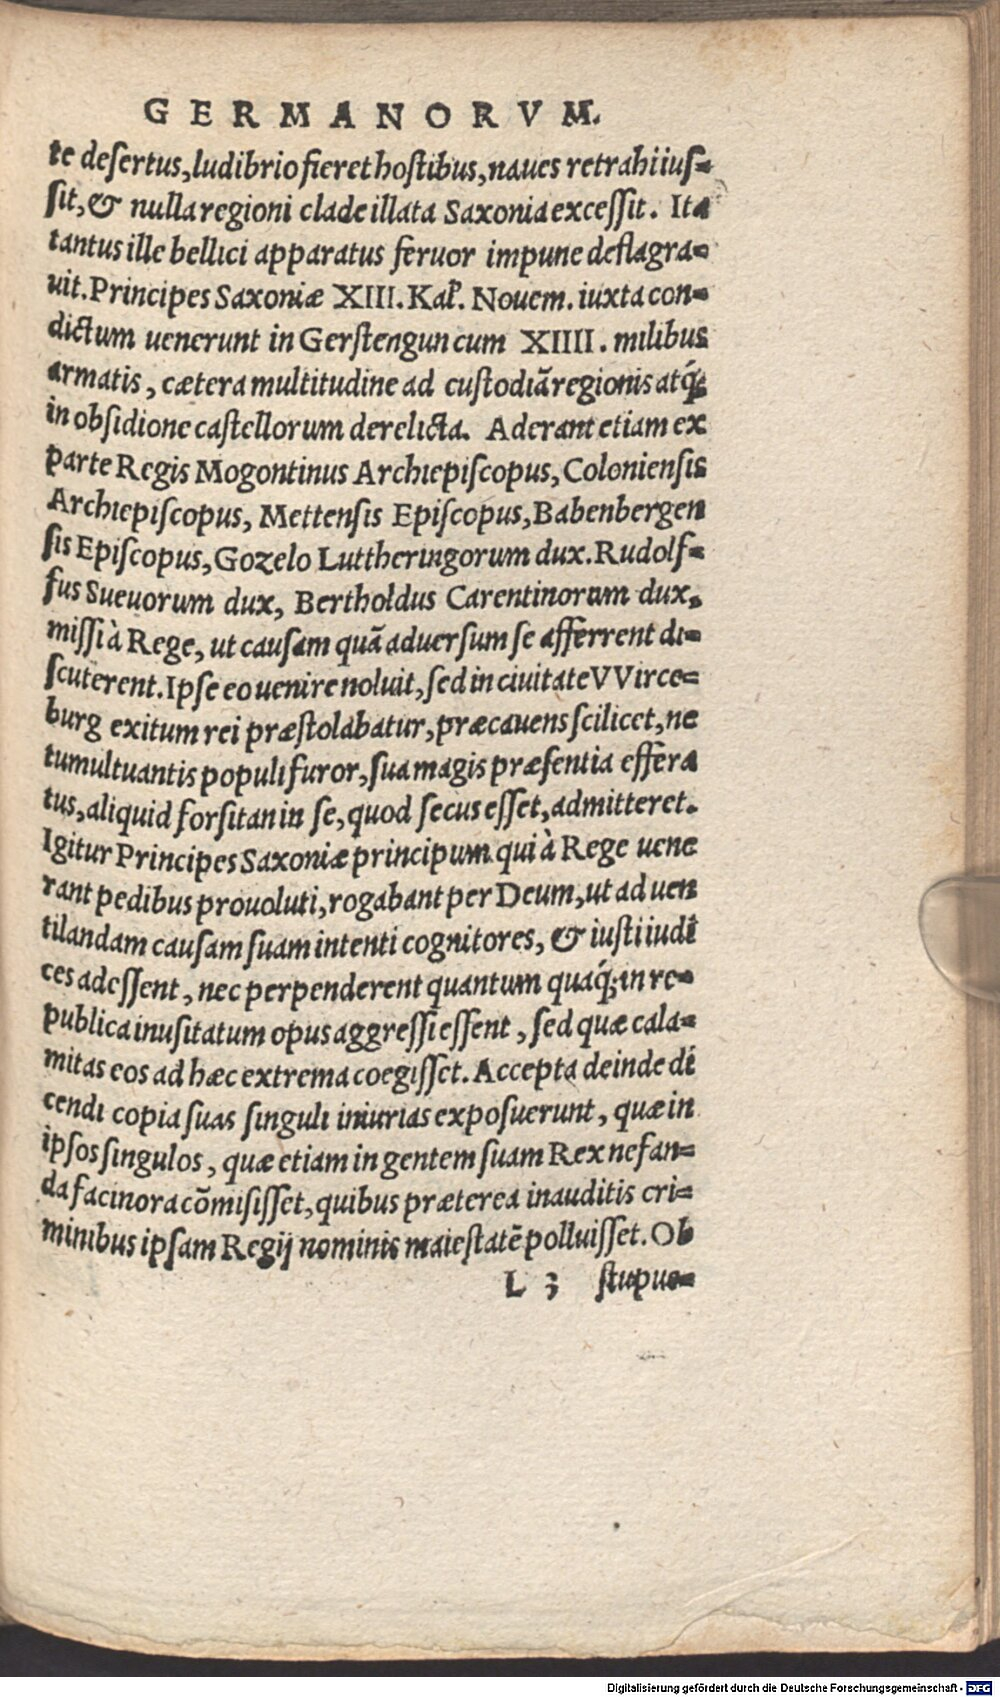 GERMANORVM.
te desertus, ludibrio fieret hostibus, naues retrahi ius-
sit, & nulla regioni clade illata Saxonia excessit. Ita
tantus ille bellici apparatus feruor impune deflagra-
uit. Principes Saxoniæ XIII. Kal. Nouem. iuxta con-
dictum uenerunt in Gerstengun cum XIIII. milibus
armatis, cætera multitudine ad custodiã regionis atq́;
in obsidione castellorum derelicta. Aderant etiam ex
parte Regis Mogontinus Archiepiscopus, Coloniensis
Archiepiscopus, Mettensis Episcopus, Babenbergen
sis Episcopus, Gozelo Luttheringorum dux. Rudolf-
fus Sueuorum dux, Bertholdus Carentinorum dux,
missi à Rege, ut causam quã aduersum se afferrent di-
scuterent. Ipse eo uenire noluit, sed in ciuitate VVirce-
burg exitum rei præstolabatur, præcauens scilicet, ne
tumultuantis populi furor, sua magis præsentia effera
tus, aliquid forsitan in se, quod secus esset, admitteret.
Igitur Principes Saxoniæ principum qui à Rege uene
rant pedibus prouoluti, rogabant per Deum, ut ad uen
tilandam causam suam intenti cognitores, & iusti iudi
ces adessent, nec perpenderent quantum quaq́; in re-
publica inusitatum opus aggressi essent, sed quæ cala-
mitas eos ad hæc extrema coegisset. Accepta deinde di
cendi copia suas singuli iniurias exposuerunt, quæ in
ipsos singulos, quæ etiam in gentem suam Rex nefan-
da facinora cõmisisset, quibus præterea inauditis cri-
minibus ipsam Regij nominis maiestatẽ polluisset. Ob
L 3 stupue-
Digitalisierung gefördert durch die Deutsche Forschungsgemeinschaft - DFG